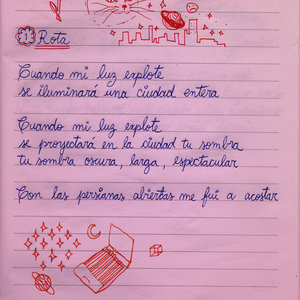 1 Rota
Cuando mi luz explote
se iluminará una ciudad entera
Cuando mi luz explote
se proyectará en la ciudad tu sombra
tu sombra oscura, larga, espectacular
Con las persianas abiertas me fui a acostar